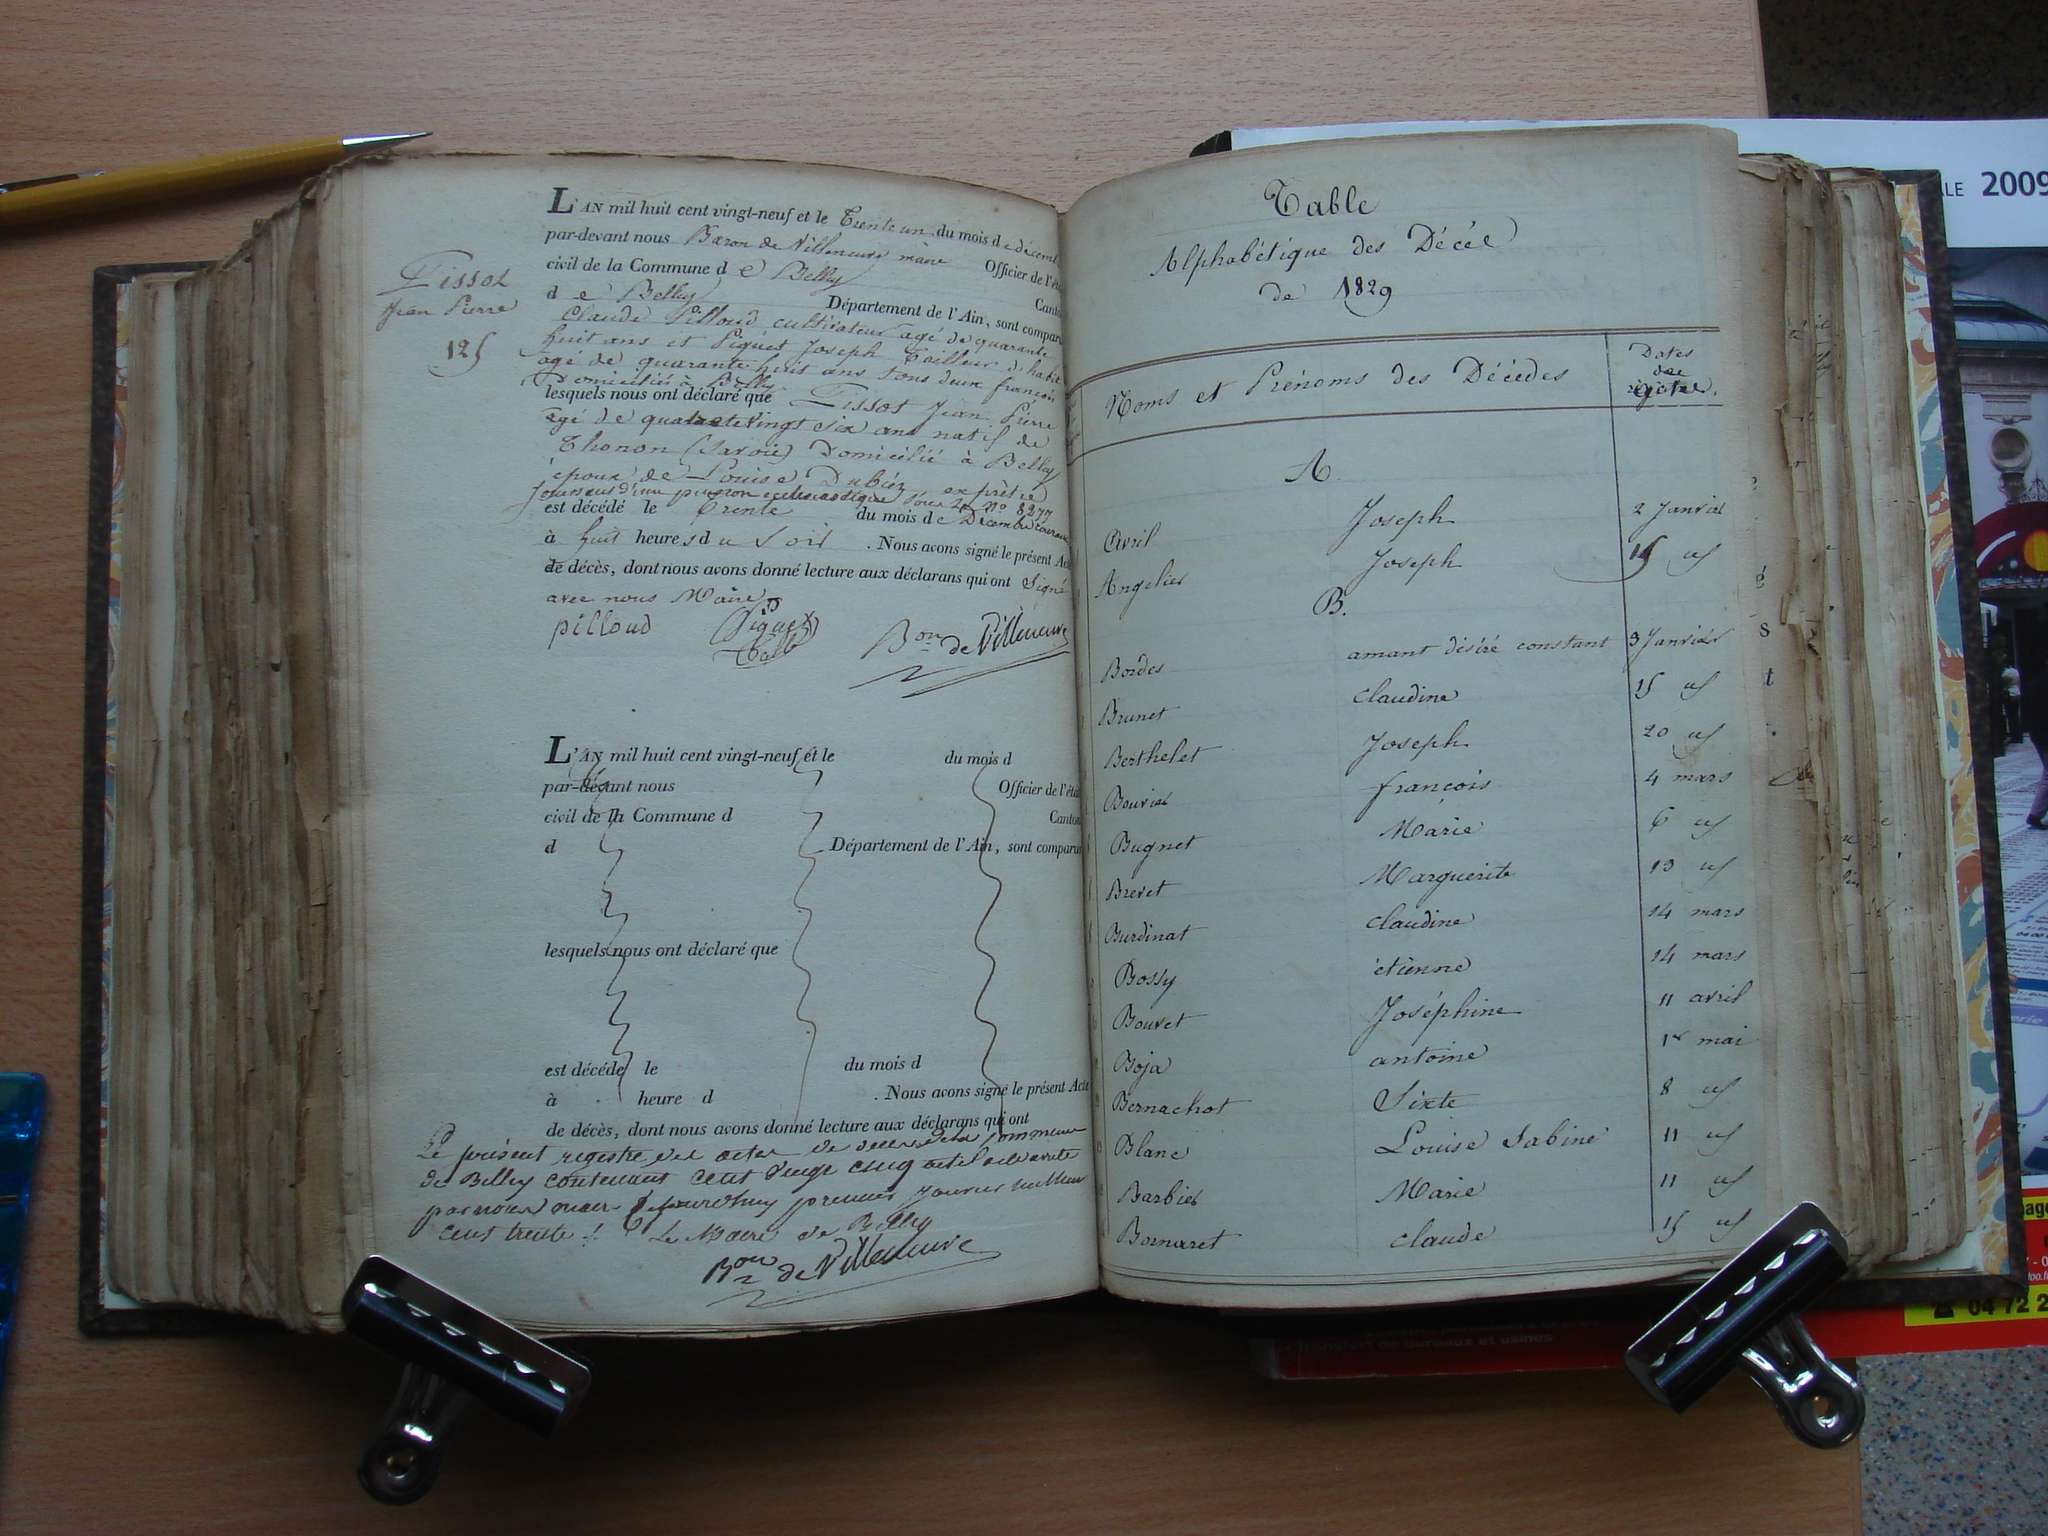 L'AN mil huit cent vingt-neuf et le Trente un du mois de décemb
par-devant nous Baron de Villeneuve maire Officier de l'éta
civil de la Commune de Belley Canton
de Belley Département de l'Ain, sont comparu
Claude Pilloud cultivateur agé de quarante
huit ans et Piguet Joseph Tailleur d'habit
agé de quarante huit ans tous deux français
Domiciliés à Belley
lesquels nous ont déclaré que Tissot Jean Pierre
agé de quatrevingt six ans natif de
Thonon (Savoie) Domicilié à Belley
époux de Louise Dubiez ex prêtre
jouissant d'une pension ecclésiastique sous le No 8277
est décédé le Trente du mois de Décembre courant
à huit heures du Soir . Nous avons signé le présent Acte
de décès, dont nous avons donné lecture aux déclarans qui ont Signé
avec nous Maire
pilloud Piguet Bon de Villeneuve
Tissot
Jean Pierre
125
L'AN mil huit cent vingt-neuf et le du mois d
par-devant nous Officier de l'éta
civil de la Commune d Canton
d Département de l'Ain, sont comparu
lesquels nous ont déclaré que
est décédé le du mois d
à heure d . Nous avons signé le présent Acte
de décès, dont nous avons donné lecture aux déclarans qui ont
Le présent registre des actes de décès de la Commune
de Belley contenant cent vingt cinq actes a été arrêté
par nous maire aujourd'huy premier Janvier mil huit
cent trente . Le Maire de Belley
Bon de Villeneuve
Table
Alphabétique des Décès
de 1829
Noms et Prénoms des Décédés Dates
des
A
Avril Joseph 2 Janvier
Angelier Joseph 15 id
B.
Bordes amant désiré constant 3 Janvier
Brunet Claudine 15 id
Berthelet Joseph 20 id
Bouvier françois 4 mars
Bugnet Marie 6 id
Brevet Marguerite 13 id
Burdinat Claudine 14 mars
Bossy étienne 14 mars
Bouvet Joséphine 11 avril
Boja antoine 1er mai
Bernachot Sixte 8 id
Blanc Louise Sabine 11 id
Barbier Marie 11 id
Bornaret Claude 15 id
ALE 2009
04 72 2
Transfert de bureaux et usines